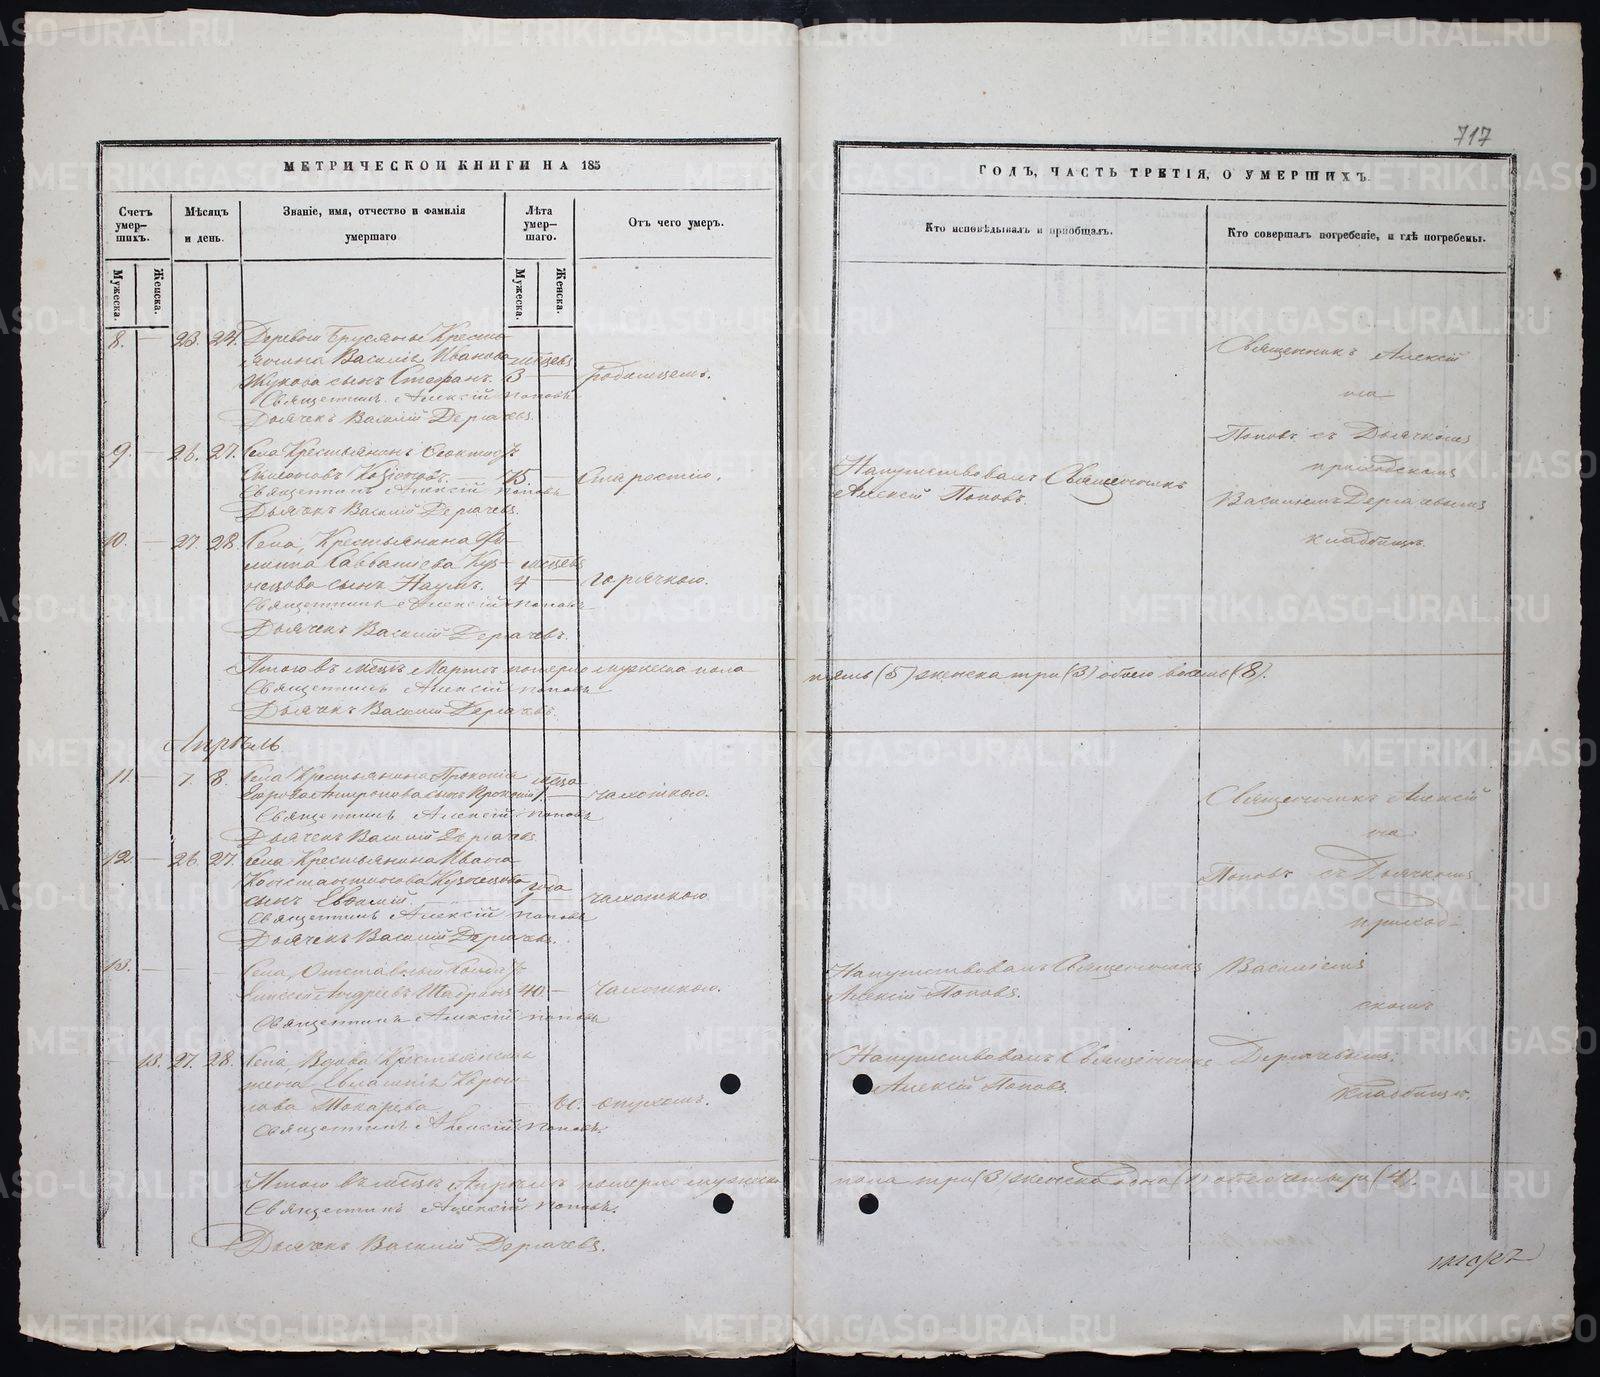 717
МЕТРИЧЕСКОЙ КНИГИ НА 185
ГОДЪ, ЧАСТЬ ТРЕТІЯ, О УМЕРШИХЪ.
Счетъ умер-шихъ.
Мѣсяцъ и день.
Званіе, имя, отчество и фамилія умершаго
Лѣта умер-шаго.
Отъ чего умеръ.
Кто исповѣдывалъ и пріобщалъ.
Кто совершалъ погребеніе, и гдѣ погребены.
Мужеска.
Женска.
Мужеска.
Женска.
8. — 23. 24. Деревни Брусяны Крестья
янина Василія Иванова мѣсцевъ
Жукова сынъ Стефанъ. 3 — Родимцемъ.
Священникъ Алексій Поповъ
Дьячекъ Василій Дергачевъ.
Священникъ Алексій
Поповъ съ Дьячкомъ
приходскимъ
Василіемъ Дергачевымъ
кладбищѣ.
9. — 26. 27. Села Крестьянинъ
75 — Старостію.
Священникъ Алексій Поповъ
Дьячекъ Василій Дергачевъ.
Напутствовалъ Священникъ
Алексій Поповъ.
10. — 27. 28. Села, Крестьянина Фи-
липпа Савватіева Куз- мѣсцевъ
нецова сынъ Наумъ. 4 — горячкою.
Священникъ Алексій Поповъ
Дьячекъ Василій Дергачевъ.
Итого въ мѣсцѣ Мартѣ померло мужеска пола
пять (5) женска три (3) обоего восемь (8).
Священникъ Алексій Поповъ
Дьячекъ Василій Дергачевъ.
Апрѣль.
11. — 7. 8. Села Крестьянина Прокопія мѣсца
сынъ Прокопій 1 — чахоткою.
Священникъ Алексій Поповъ
Дьячекъ Василій Дергачевъ
12. — 26. 27. Села Крестьянина Ивана
Константинова Кузнецова года
сынъ Евфимій. 1 — чахоткою
Священникъ Алексій Поповъ
Дьячекъ Василій Дергачевъ.
Священникъ Алексій
Поповъ съ Дьячкомъ
приход-
Василіемъ
скимъ
Дергачевымъ.
Кладбищѣ.
13. — Села, Отставный
Андреевъ 40 — Чахоткою.
Священникъ Алексій Поповъ
Напутствовалъ Священникъ
Алексій Поповъ.
— 13. 27. 28. Села, Вдова Крестьянская
Токарева 60. опухомъ.
Священникъ Алексій Поповъ.
Напутствовалъ Священникъ
Алексій Поповъ.
Итого въ мѣсцѣ Апрѣлѣ померло мужеска
пола три (3) женска одна (1) обоего четыре (4).
Священникъ Алексій Поповъ.
Дьячекъ Василій Дергачевъ.
METRIKI.GASO-URAL.RU